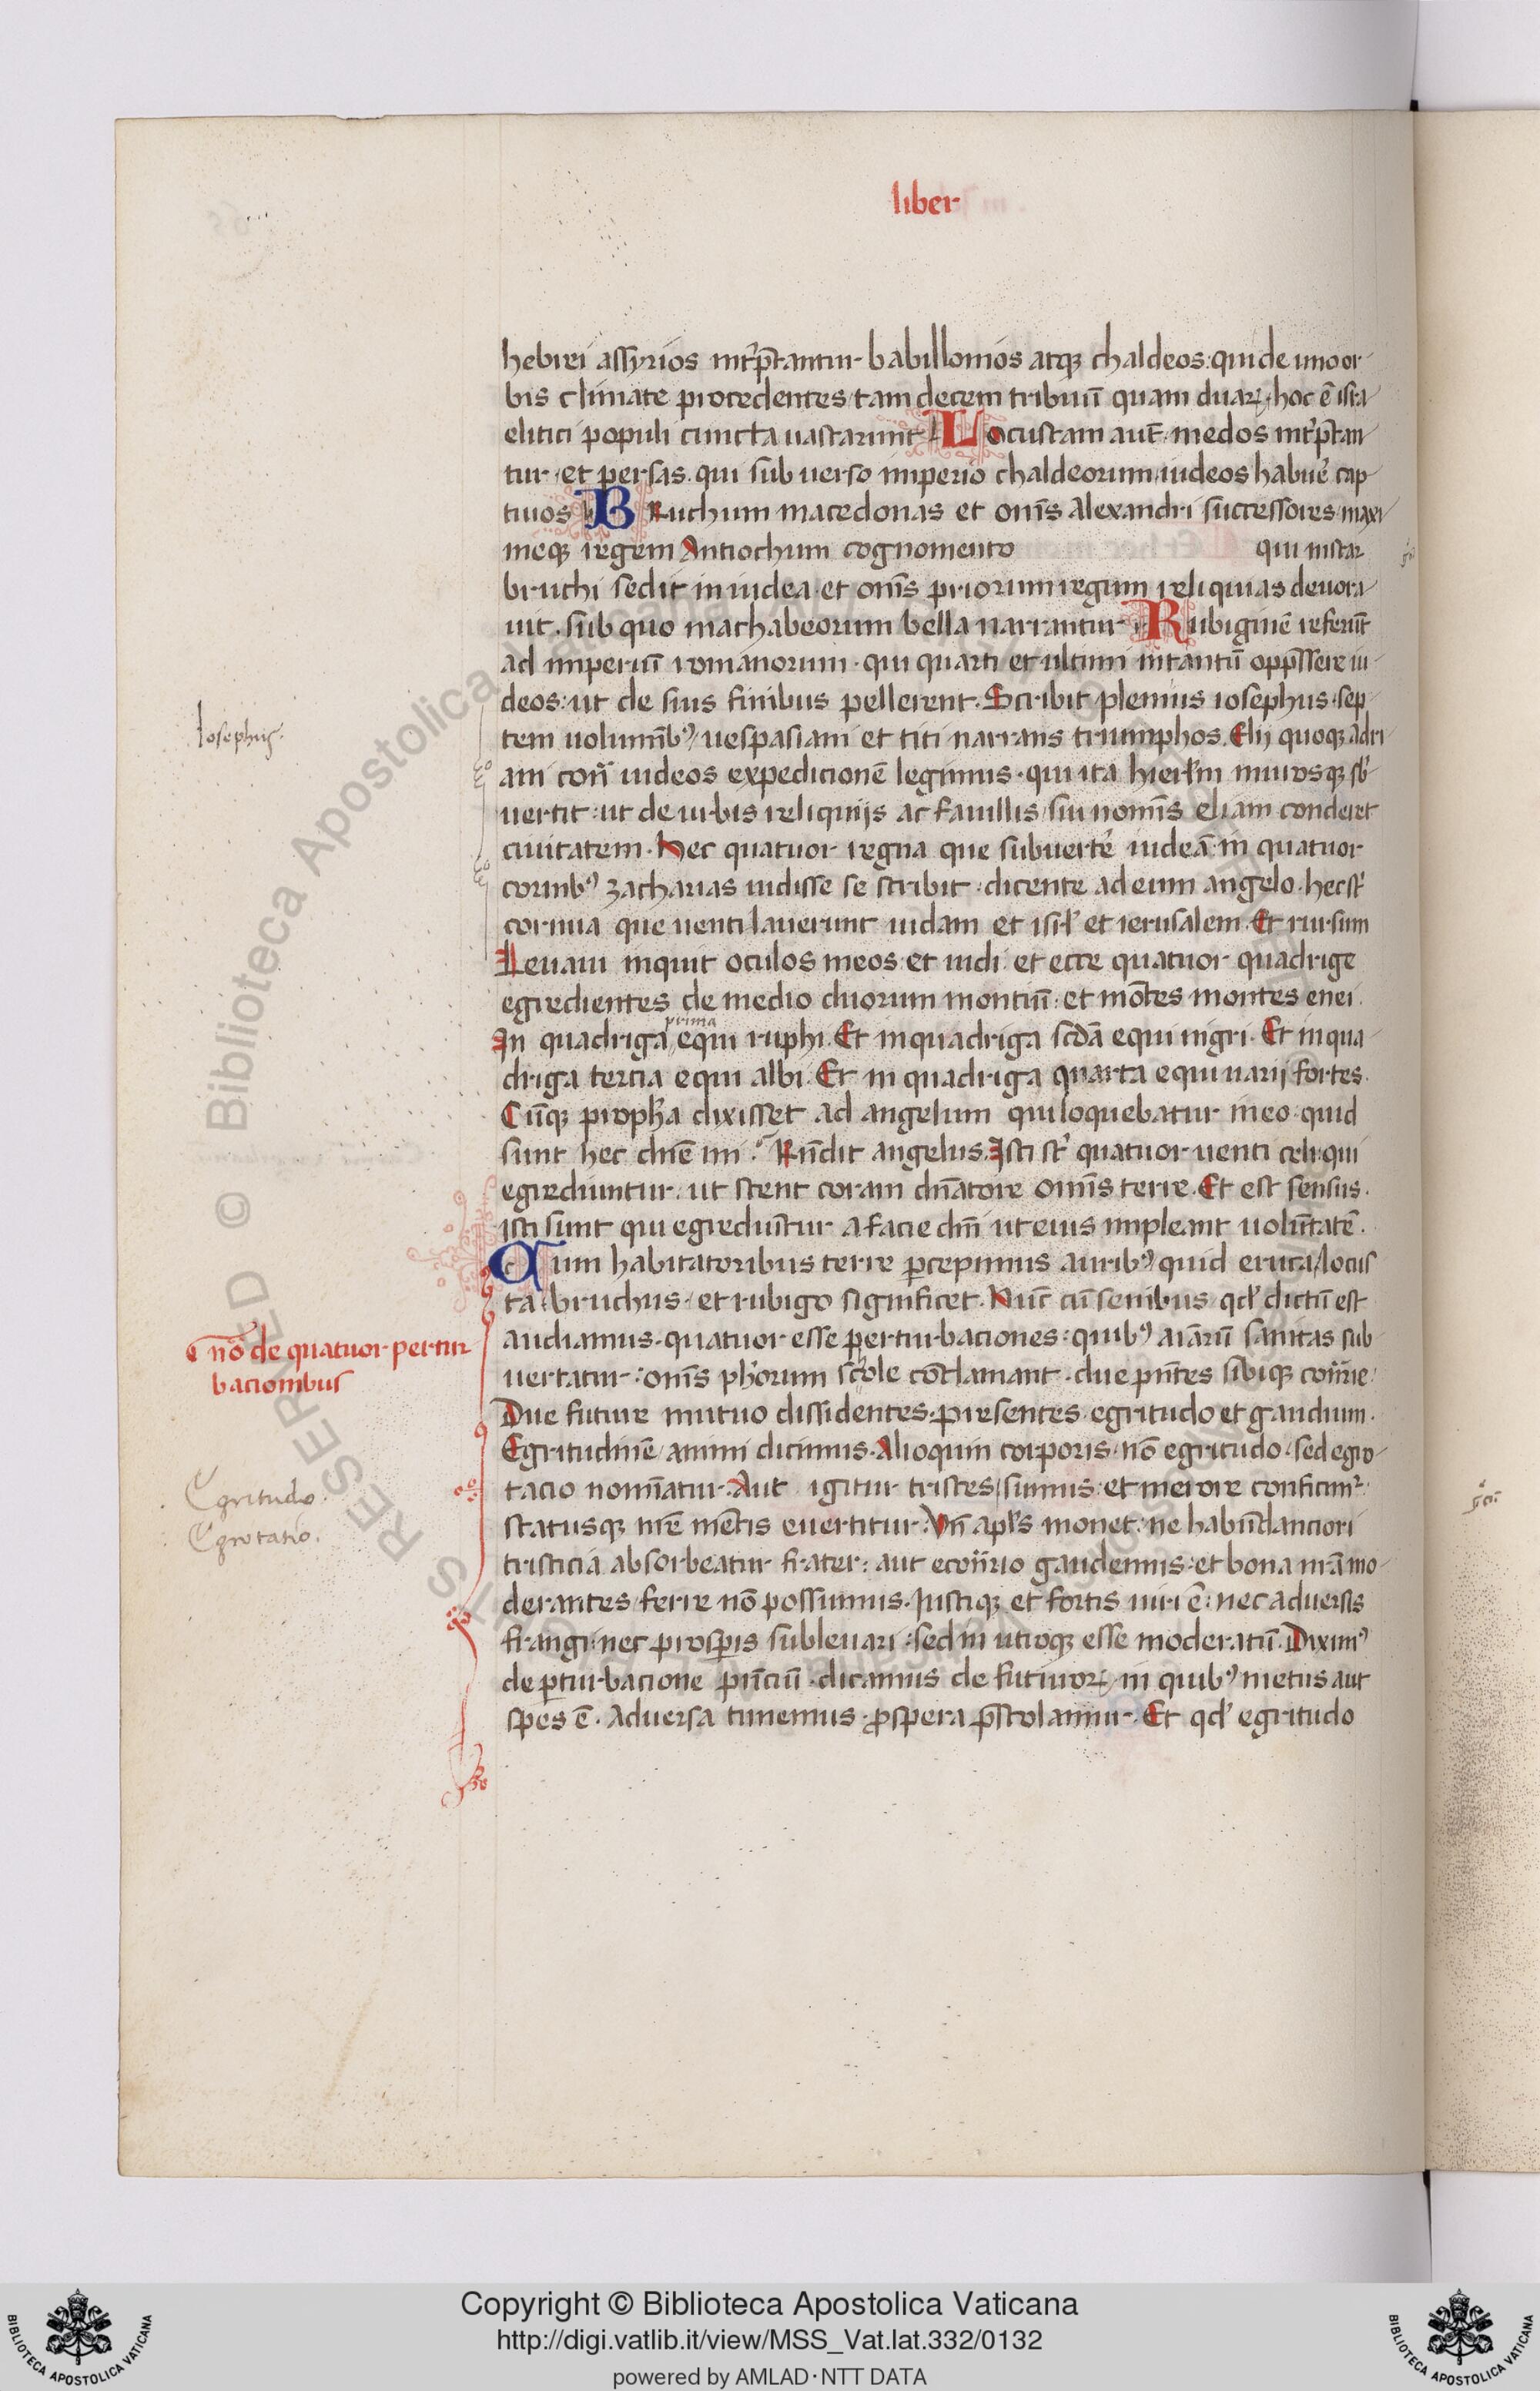 liber
hebrei assyrios int̄p̄tantur babillonios atqꝫ chaldeos. qui de uno or
bis climate procedentes tam decem tribuū quam duaꝝ. hoc ē isra
elitici populi cuncta uastarunt Locustam aut̄ medos int̄p̄tan
tur. et persas. qui subuerso imperio chaldeorum iudeos habuer̄ cap
tiuos BRuchum macedonas et om̄s alexandri successores maxi
meqꝫ regem Antiochum cognomento qui instar
bruchi sedit in iudea. et om̄s priorum regum reliquias deuora
uit. sub quo machabeorum bella narrantur Rubiginē referūt
ad imperiū romanorum. qui quarti et ultimi intantū opp̄ssere iu
deos: ut de suis finibus pellerent. Scribit plenius iosephus. sep
tem uolumībꝰ uespasiani et titi narrans triumphos. Elij quoqꝫ adri
Iosephus.
ani cont̄ iudeos expedicionē legimus. qui ita hierl̄m murosqꝫ sb̄
uertit: ut de urbis reliquijs ac fauillis sui nomīs eliam conderet
ciuitatem. Hec quatuor regna que subuerter̄ iudeā in quatuor
cornibꝰ zacharias uidisse se scribit. dicente ad eum angelo. hec st̄
cornua que uentilauerunt iudam et isrl̄ et ierusalem. Et rursum
Leuaui inquit oculos meos et uidi et ecce quatuor quadrige
egredientes de medio duorum montiū: et mōtes montes enei.
prima
In quadriga equi ruphi. Et in quadriga scd̄a equi nigri. Et in qua
driga tercia equi albi. Et in quadriga quarta equi uarij fortes.
Cūqꝫ proph̄a dixisset ad angelum qui loquebatur in eo quid
sunt hec dn̄e mi? Rn̄dit angelus. Isti st̄ quatuor uenti celi. qui
egrediuntur. ut stent coram dn̄atore om̄is terre. Et est sensus.
isti sunt qui egrediūtur a facie dn̄i ut eius impleant uolūtatē.
Cum habitatoribus terre percepimus auribꝰ quid eruca/locus
ta bruchus et rubigo significet. Nūc cū senibus qd̄ dictū est
audiamus. quatuor esse perturbaciones: quibꝰ aīarū sanitas sub
nō de quatuor pertur
bacionibus
uertatur: om̄s ph̄orum scole cōclamant. due pn̄tes sibiqꝫ cont̄rie:
Due future mutuo dissidentes. presentes. egritudo et gaudium.
Egritudinē animi dicimus. Alioquin corporis. nō egritudo. sed egro
Egritudo.
tacio nominatur. Aut igitur tristes sumus: et merore conficimur
Egrotatio.
statusqꝫ nr̄e mētis euertitur. Vn̄ apl̄s monet: ne habūdanciori
tristicia absorbeatur frater: aut econt̄rio gaudemus. et bona nr̄a mo
derantes ferre nō possumus. Iustiqꝫ et fortis uiri ē: nec aduersis
frangi. nec prosperis subleuari: sed in utroqꝫ esse moderatū. Diximꝰ
de perturbacione pn̄ciū. dicamus de futuroꝝ in quibꝰ metus aut
spes ē. Aduersa timemus. prospera prestolamur. Et qd̄ egritudo
© Biblioteca Apostolica Vaticana
Copyright © Biblioteca Apostolica Vaticana
http://digi.vatlib.it/view/MSS_Vat.lat.332/0132
powered by AMLAD·NTT DATA
BIBLIOTECA APOSTOLICA VATICANA
BIBLIOTECA APOSTOLICA VATICANA